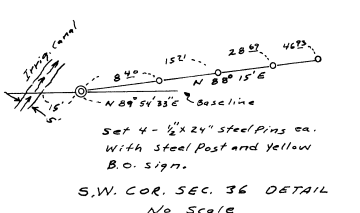 Irrig. Canal
8 40
15 21
28 67
46 93
N 88° 15' E
15'
5'
N 89° 54' 33" E
Baseline
Set 4 - ½" x 24" steel Pins ea.
With Steel Post and Yellow
B.O. sign.
S.W. COR. SEC. 36 DETAIL
No Scale